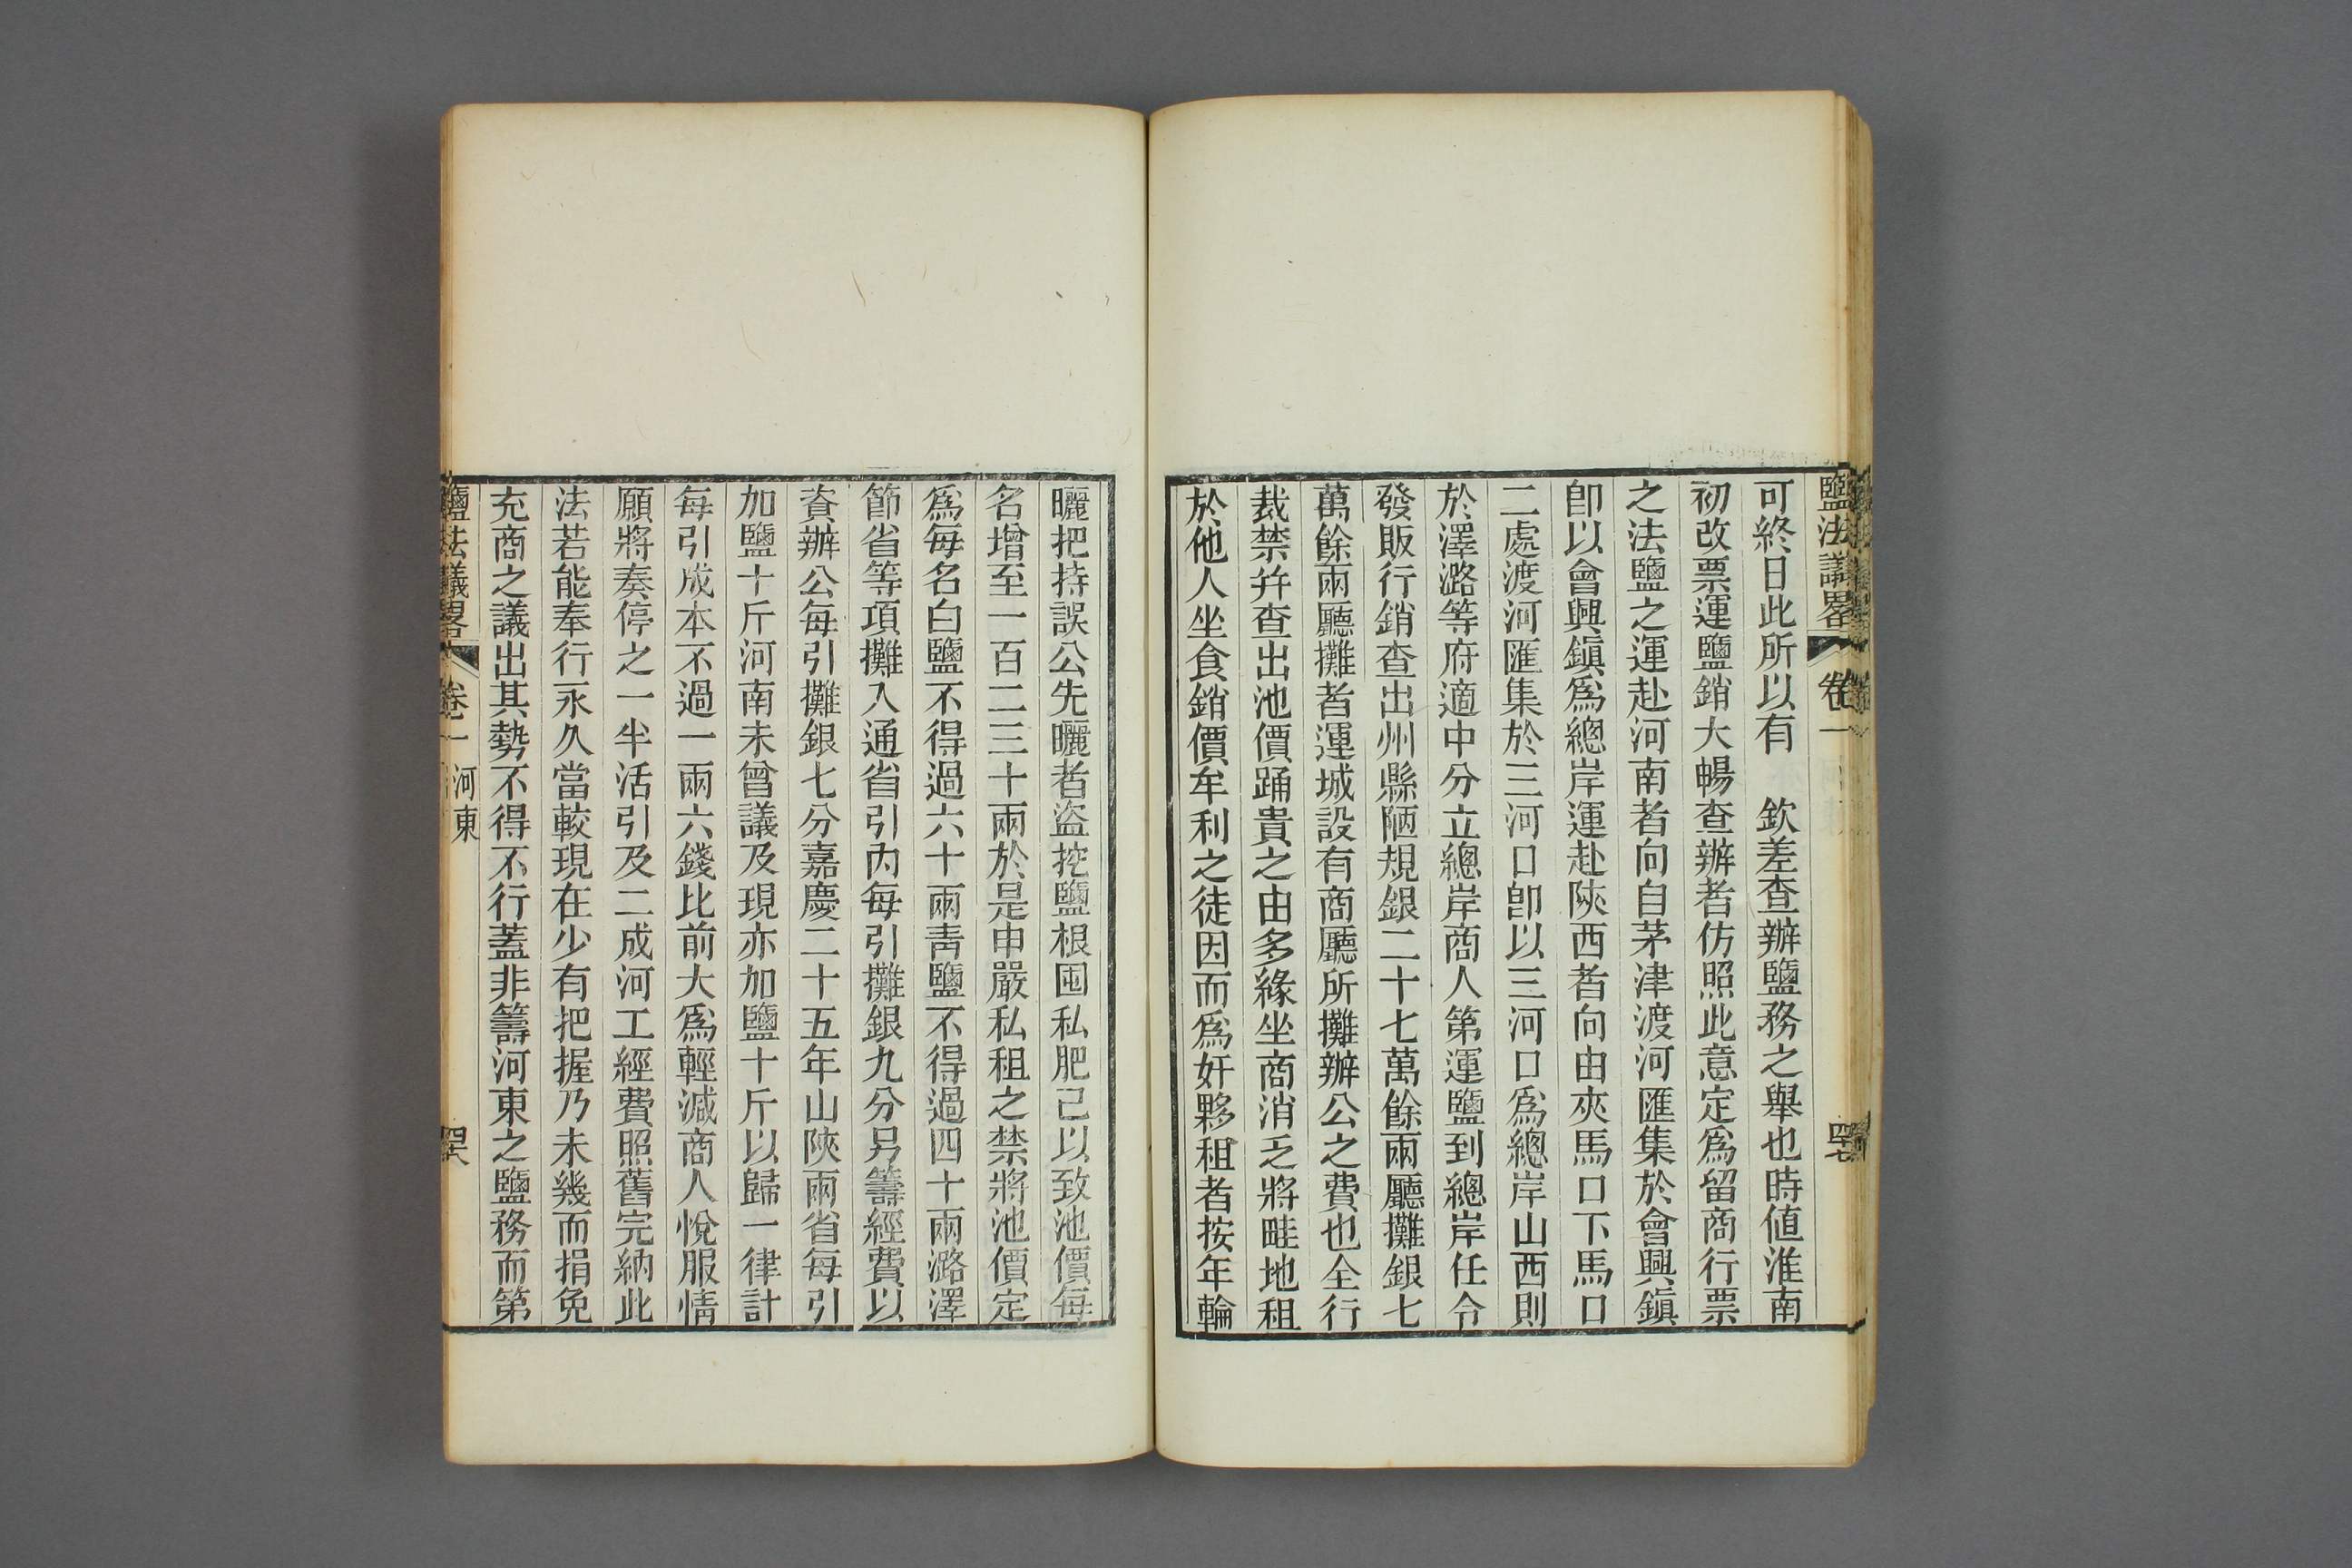 鹽法議畧 卷一
可終日此所以有 欽差查辦鹽務之舉也時値淮南
初改票運鹽銷大暢查辦者仿照此意定爲留商行票
之法鹽之運赴河南者向自茅津渡河匯集於會興鎭
卽以會興鎭爲總岸運赴陝西者向由夾馬口下馬口
二處渡河匯集於三河口卽以三河口爲總岸山西則
於澤潞等府適中分立總岸商人第運鹽到總岸任令
發販行銷查出州縣陋規銀二十七萬餘兩廳攤銀七
萬餘兩廳攤者運城設有商廳所攤辦公之費也全行
裁禁幷查出池價踊貴之由多緣坐商消乏將畦地租
於他人坐食銷價牟利之徒因而爲奸夥租者按年輪
曬把持誤公先曬者盜挖鹽根囤私肥己以致池價每
名增至一百二三十兩於是申嚴私租之禁將池價定
爲每名白鹽不得過六十兩靑鹽不得過四十兩潞澤
節省等項攤入通省引內每引攤銀九分另籌經費以
資辦公每引攤銀七分嘉慶二十五年山陝兩省每引
加鹽十斤河南未曾議及現亦加鹽十斤以歸一律計
每引成本不過一兩六錢比前大爲輕減商人悅服情
願將奏停之一半活引及二成河工經費照舊完納此
法若能奉行永久當較現在少有把握乃未幾而捐免
充商之議出其勢不得不行蓋非籌河東之鹽務而第
鹽法議畧 卷一 河東